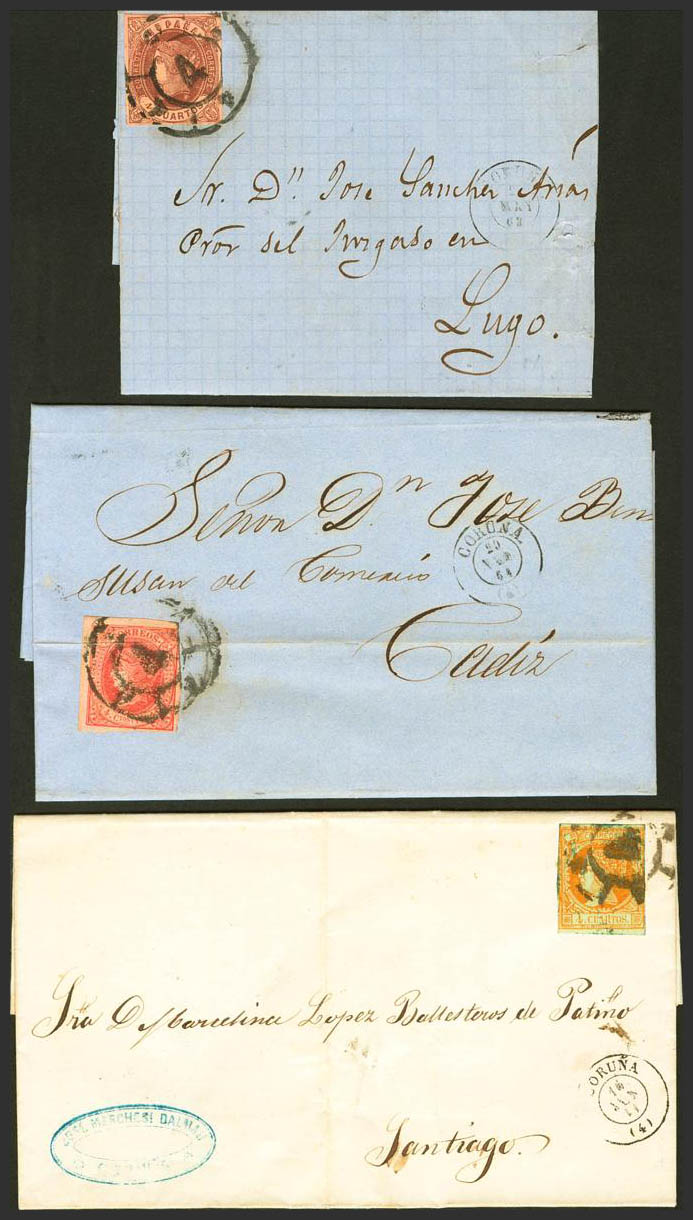 ESPAÑA
4 CUARTOS
4
CORUÑA
MAY
63
Sr. Dn. Jose Sanchez Arias
Pror del Juzgado en
Lugo.
Señor Dn Jose Ben
susan del Comercio
CORUÑA
20
64
(4)
CORREOS
4 CUARTOS
4
Cadiz
CORREOS
4 CUARTOS.
Sra D Marcelina Lopez Ballesteros de Patiño
CORUÑA
16
(4)
JOSE MARCHESI DALMAU
Santiago.